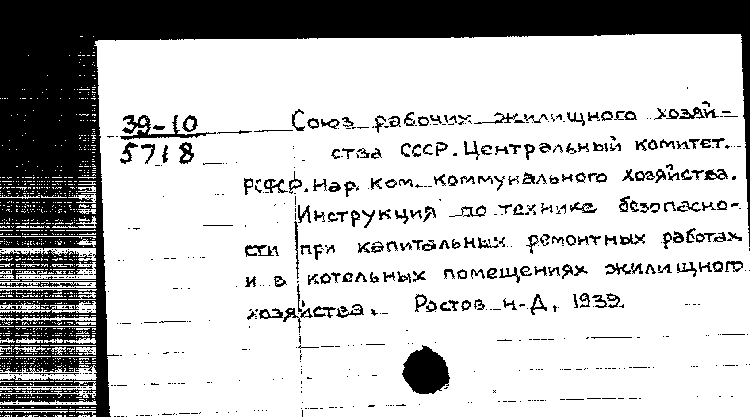 39-10
5718
Союз рабочих жилищного хозяй-
ства СССР. Центральный комитет.
РСФСР. Нар. ком. коммунального хозяйства.
Инструкция по технике безопасно-
сти при капитальных ремонтных работах
и в котельных помещениях жилищного
хозяйства. Ростов н-Д, 1939.